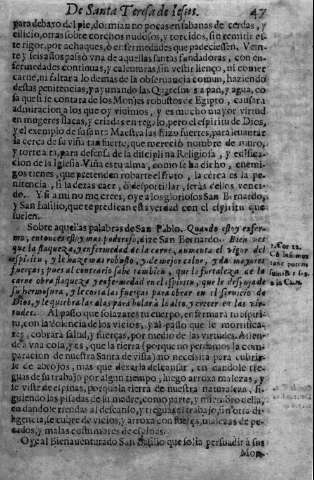 De Santa Teresa de Iesus. 47
para debaxo del pie, dormian no pocas en sabanas de cerdas, y
cilicio, otras sobre corchos nudosos, y torcidos, sin remitir este
rigor, por achaques, ò enfermedades que padeciessen. Vein-
te y seis años passò vna de aquellas santas fundadoras, con en-
fermedades continuas, y calenturas, sin vestir lienço, ni comer
carne, ni faltar a lo demas de la obseruancia comun, haziendo
estas penitencias, y ayunando las Quaresmas a pan, y agua, co
sa que si se contara de los Monjes robustos de Egipto, causara
admiracion a los que oy viuimos, y es mucho mayor virtud
en mugeres flacas, y criadas en regalo, pero el espiritu de Dios,
y el exemplo de su santa Maestra las hizo fuertes, para leuantar
la cerca de su viña tan fuerte, que mereciò nombre de muro,
y torre para defensa de la disciplina Religiosa, y edifica-
cion de la Iglesia Viña es tu alma, como te ha dicho,
tienes, que pretenden robarte el fruto, la cerca es la pe-
nitencia, si la dexas caer, ò desportillar,
nado. Y si a mi no me crees, oye a los gloriosos San Bernardo,
y San Basilio, que te predican esta verdad con el espiritu que
suelen.
Sobre aquellas palabras de San Pablo. Quando estoy enfer-
mo, entonces estoy mas poderoso, dize San Bernardo. Bien ves
que la flaqueza, y enfermedad de la carne, aumenta el vigor del
espiritu, y le haze mas robusto, y de mejor color, y da mayores
fuerças; pues al contrario sabe tambien, que la fortaleza de la
carne obra flaqueza y enfermedad en el espiritu, que le
hermosura, y le corta las fuerças para obrar en el seruicio de
Dios, y le quiebra las alas para bolar a lo alto, y crecer en las vir-
tudes. Al passo que solazares tu cuerpo, enfermarà tu espiri-
tu, con la dolencia de los vicios, y al passo que le mortifica-
res, cobrarà salud, y fuerças, por medio de las virtudes. Atien-
de a vna cosa, y es, que la tierra (porque no perdamos la com-
paracion de nuestra Santa de vista) no necessita para cubrir-
se de abrojos, mas que dexarla descansar, en dandole tre-
guas de su trabajo por algun tiempo, luego arroxa malezas, y
se viste de espinas, porque la tierra de nuestra naturaleza, si-
guiendo las pisadas de su madre, como parte, y miembro della,
en dandole riendas al descanso, y treguas al trabajo, sin otra di-
ligencia, se cubre de vicios, y arroxa con fuerça, malezas de pe-
cados, y malas costumbres de espinas.
Oye al Bienauenturado San Basilio que solia persuadir a sus
Mon-
2. Cor. 12.